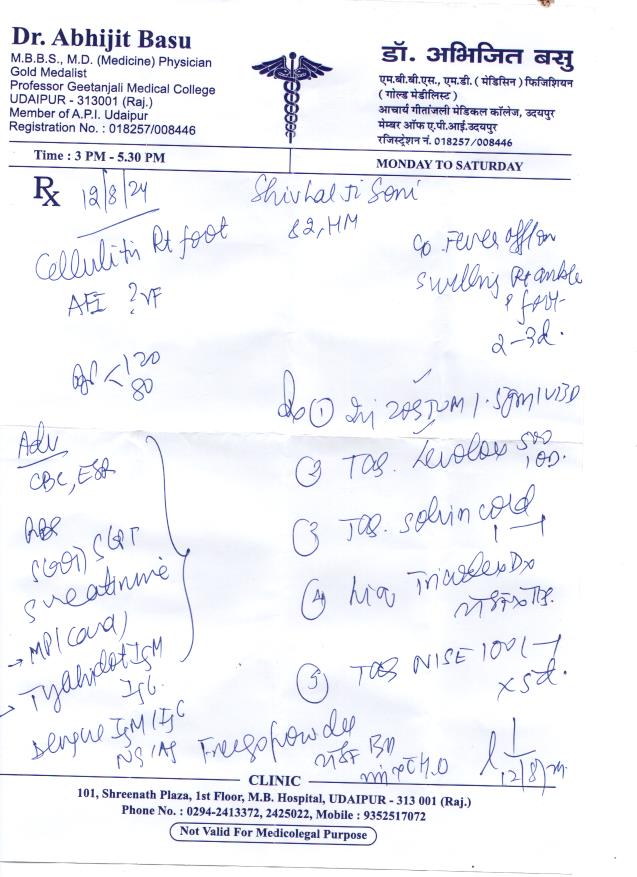 Dr. Abhijit Basu
M.B.B.S., M.D. (Medicine) Physician
Gold Medalist
Professor Geetanjali Medical College
UDAIPUR - 313001 (Raj.)
Member of A.P.I. Udaipur
Registration No. : 018257/008446
डॉ. अभिजित बसु
एम.बी.बी.एस., एम.डी. ( मेडिसिन ) फिजिशियन
( गोल्ड मेडीलिस्ट )
आचार्य गीतांजली मेडिकल कॉलेज, उदयपुर
मेम्बर ऑफ ए.पी.आई.उदयपुर
रजिस्ट्रेशन नं. 018257/008446
Time : 3 PM - 5.30 PM
MONDAY TO SATURDAY
Rx 12/8/24
Soni
82, HM
Cellulitis Rt foot
AFI ? VF
c/o Fever off/on
swelling Rt ankle
& foot
2-3d.
BP < 120
80
Adv
CBC, ESR
RBS
SGOT SGPT
S creatinine
→ MP (card)
→ Typhidot IgM
IgG
Dengue IgM/IgG
NS1Ag
① Inj ZOSTUM 1.5gm IV BD
② TAB. Levolox 500
1 OD.
③ TAB. Solvin cold
1 — 1
④ Liq
⑤ TAB NISE 100 1 — 1
x 5d.
powder
12/8/24
CLINIC
101, Shreenath Plaza, 1st Floor, M.B. Hospital, UDAIPUR - 313 001 (Raj.)
Phone No. : 0294-2413372, 2425022, Mobile : 9352517072
Not Valid For Medicolegal Purpose